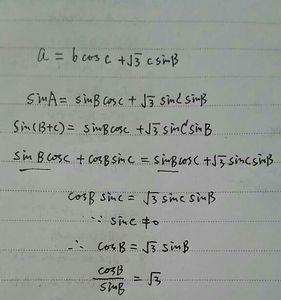 a = b cos c + √3 c sinB
sinA = sinB cosc + √3 sinC sinB
Sin(B+c) = sinB cosc + √3 sinC sinB
sin B cosc + cosB sinc = sinB cosc + √3 sinc sinB
cosB sinc = √3 sinc sinB
∵ sinc ≠0
∴ cosB = √3 sinB
cosB/sinB = √3